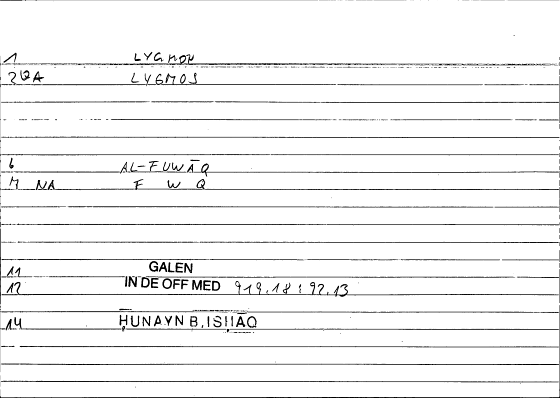 1 LYGMON
2 QA LYGMOS
6 AL-FUWĀQ
7 NA F W Q
11 GALEN
12 IN DE OFF MED 919.18 : 92.13
14 ḤUNAYN B. ISḤĀQ